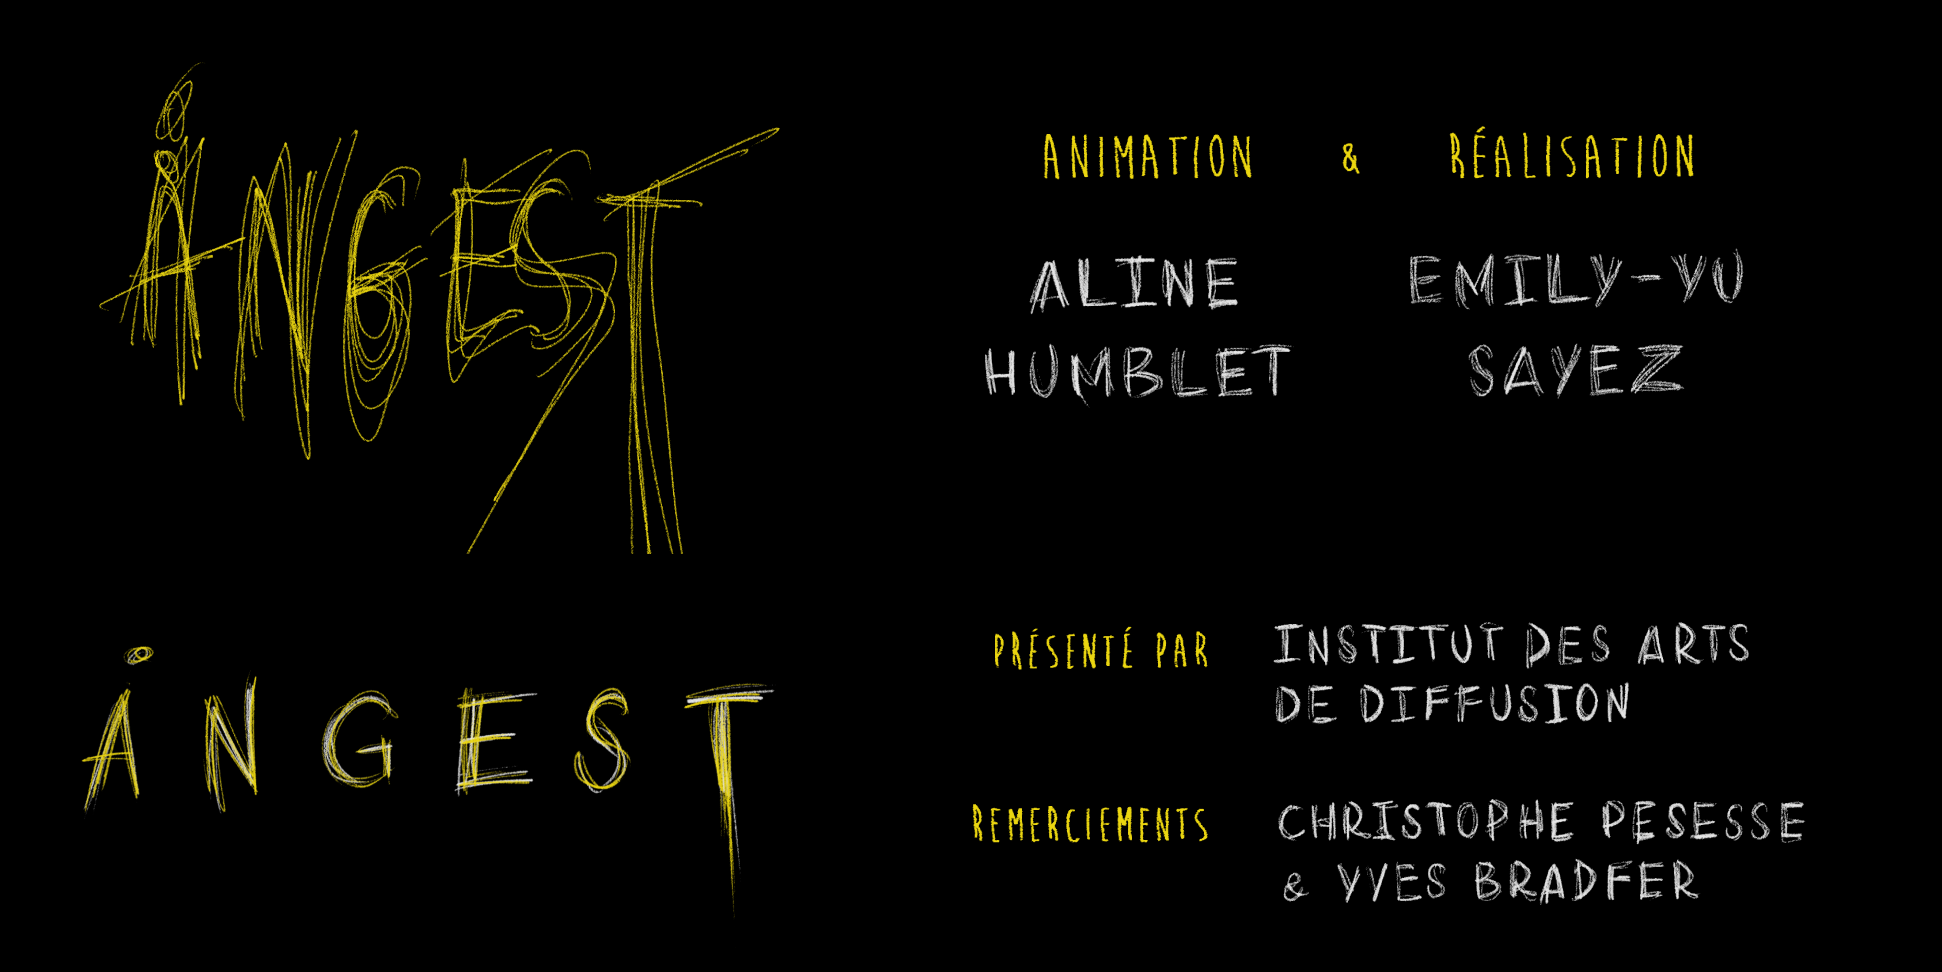 ÅNGEST
ANIMATION & RÉALISATION
ALINE HUMBLET
EMILY-YU SAYEZ
ÅNGEST
PRÉSENTÉ PAR
INSTITUT DES ARTS
DE DIFFUSION
REMERCIEMENTS
CHRISTOPHE PESESSE
& YVES BRADFER